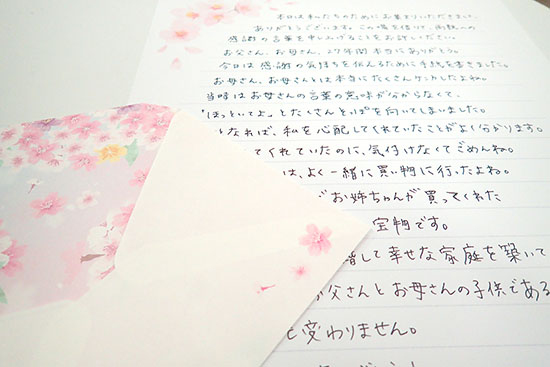 本日は私たちのためにお集まりいただきまして、
ありがとうございます。この場を借りて、両親への
感謝の言葉を申し上げることをお許しください。
お父さん、お母さん、27年間本当にありがとう。
今日は感謝の気持ちを伝えるために手紙を書きました。
お母さん、お母さんとは本当にたくさんケンカしたよね。
当時はお母さんの言葉の意味が分からなくて、
「ほっといてよ」とたくさんそっぽを向いてしまいました。
となれば、私を心配してくれていたことがよく分かります。
してくれていたのに、気付けなくてごめんね。
は、よく一緒に買い物に行ったよね。
お姉ちゃんが買ってくれた
宝物です。
して幸せな家庭を築いて
お父さんとお母さんの子供である
も変わりません。